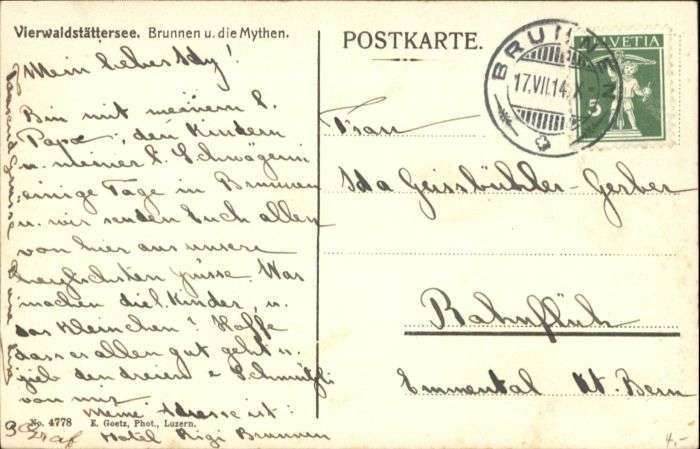 Vierwaldstättersee. Brunnen u. die Mythen.
POSTKARTE.
BRUNNEN
17.VII.14. X
HELVETIA
5
Mein liebes Idy!
Bin mit meinem l.
Papa, den Kindern
u. meiner l. Schwägerin
einige Tage in Brunnen
u. wir senden Euch allen
von hier aus unsere
herzlichsten Grüsse. Was
machen die l. Kinder, u.
das Kleinchen? Hoffe
dass es allen gut geht u.
gieb den dreien e Schmützli
von mir
Meine Adresse ist:
Hotel Rigi Brunnen
Tausend Grüsse
Frau
Ida Geissbühler-Gerber
Bahnflüh
Emmental Kt. Bern
No. 4778 E. Goetz, Phot., Luzern.
4.-